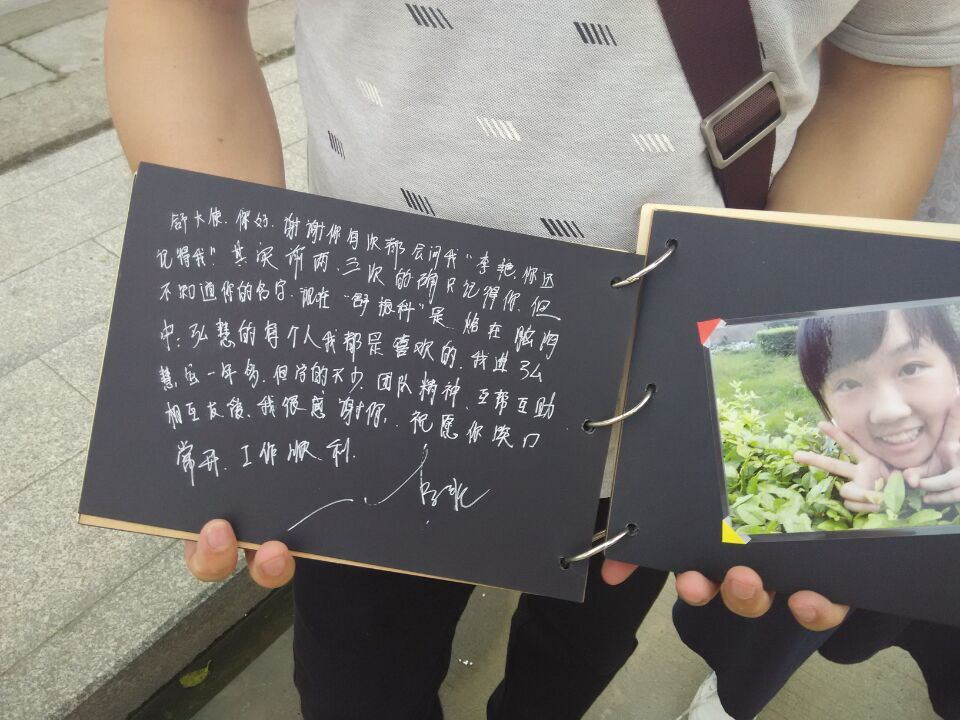 舒大使.你好.谢谢你每次都会问我“李艳.你还
记得我?其实前两.三次的确只记得你.但
不知道你的名字.现在“舒振科”是.烙在脑海
中;弘慧的每个人我都是喜欢的.我进弘
慧.仅一年多.但学的不少.团队精神.互帮互助
相互友傻.我很感谢你,.祝愿你笑口
常开.工作顺利.